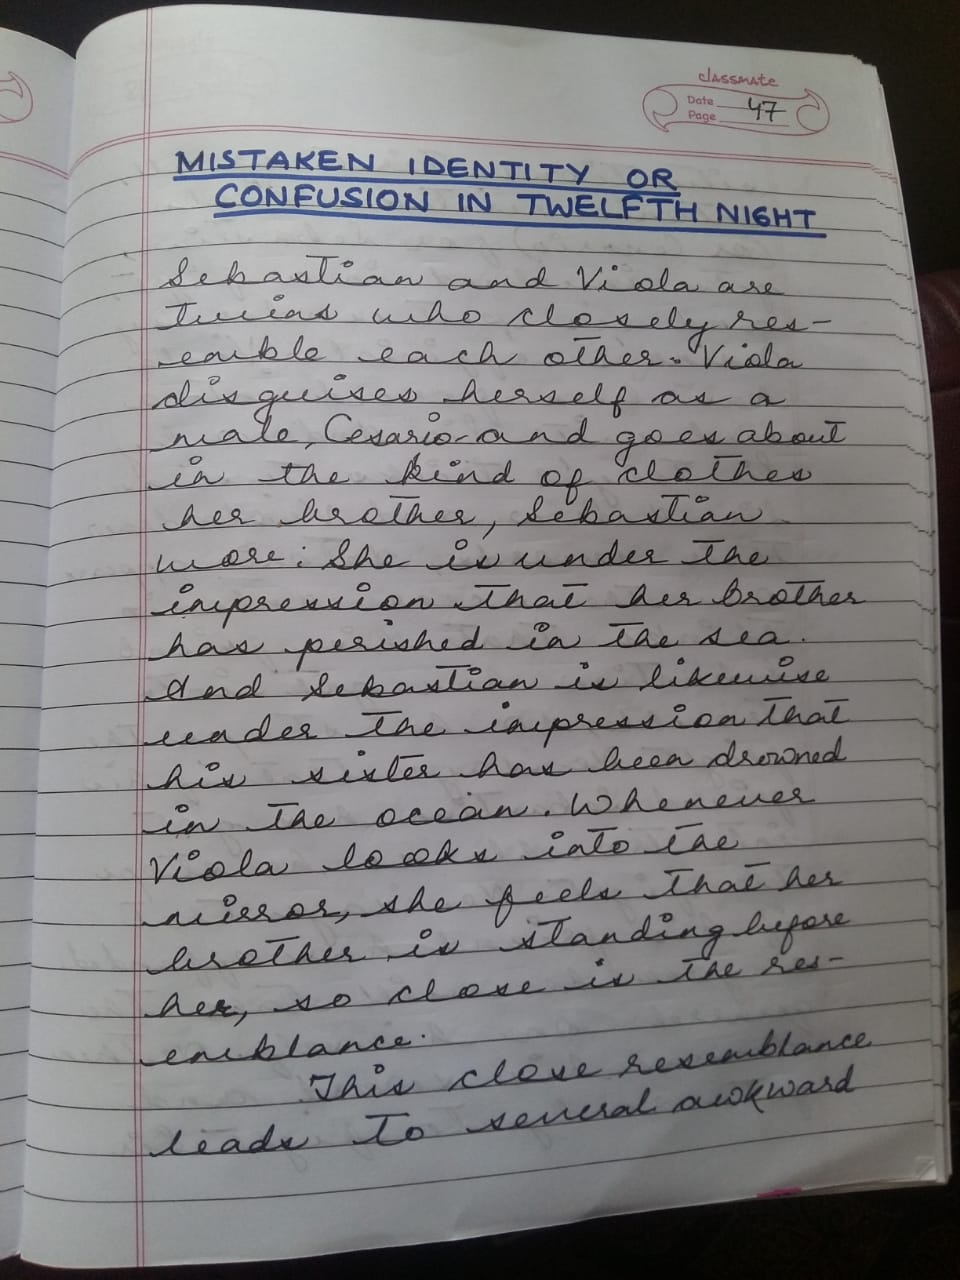 classmate
Date
Page 47
MISTAKEN IDENTITY OR
CONFUSION IN TWELFTH NIGHT
Sebastian and Viola are
twins who closely res-
emble each other. Viola
disguises herself as a
male, Cesario and goes about
in the kind of clothes
her brother, Sebastian
wore. She is under the
impression that her brother
has perished in the sea.
And Sebastian is likewise
under the impression that
his sister has been drowned
in the ocean. Whenever
Viola looks into the
mirror, she feels that her
brother is standing before
her, so close is the res-
emblance.
This close resemblance
leads to several awkward